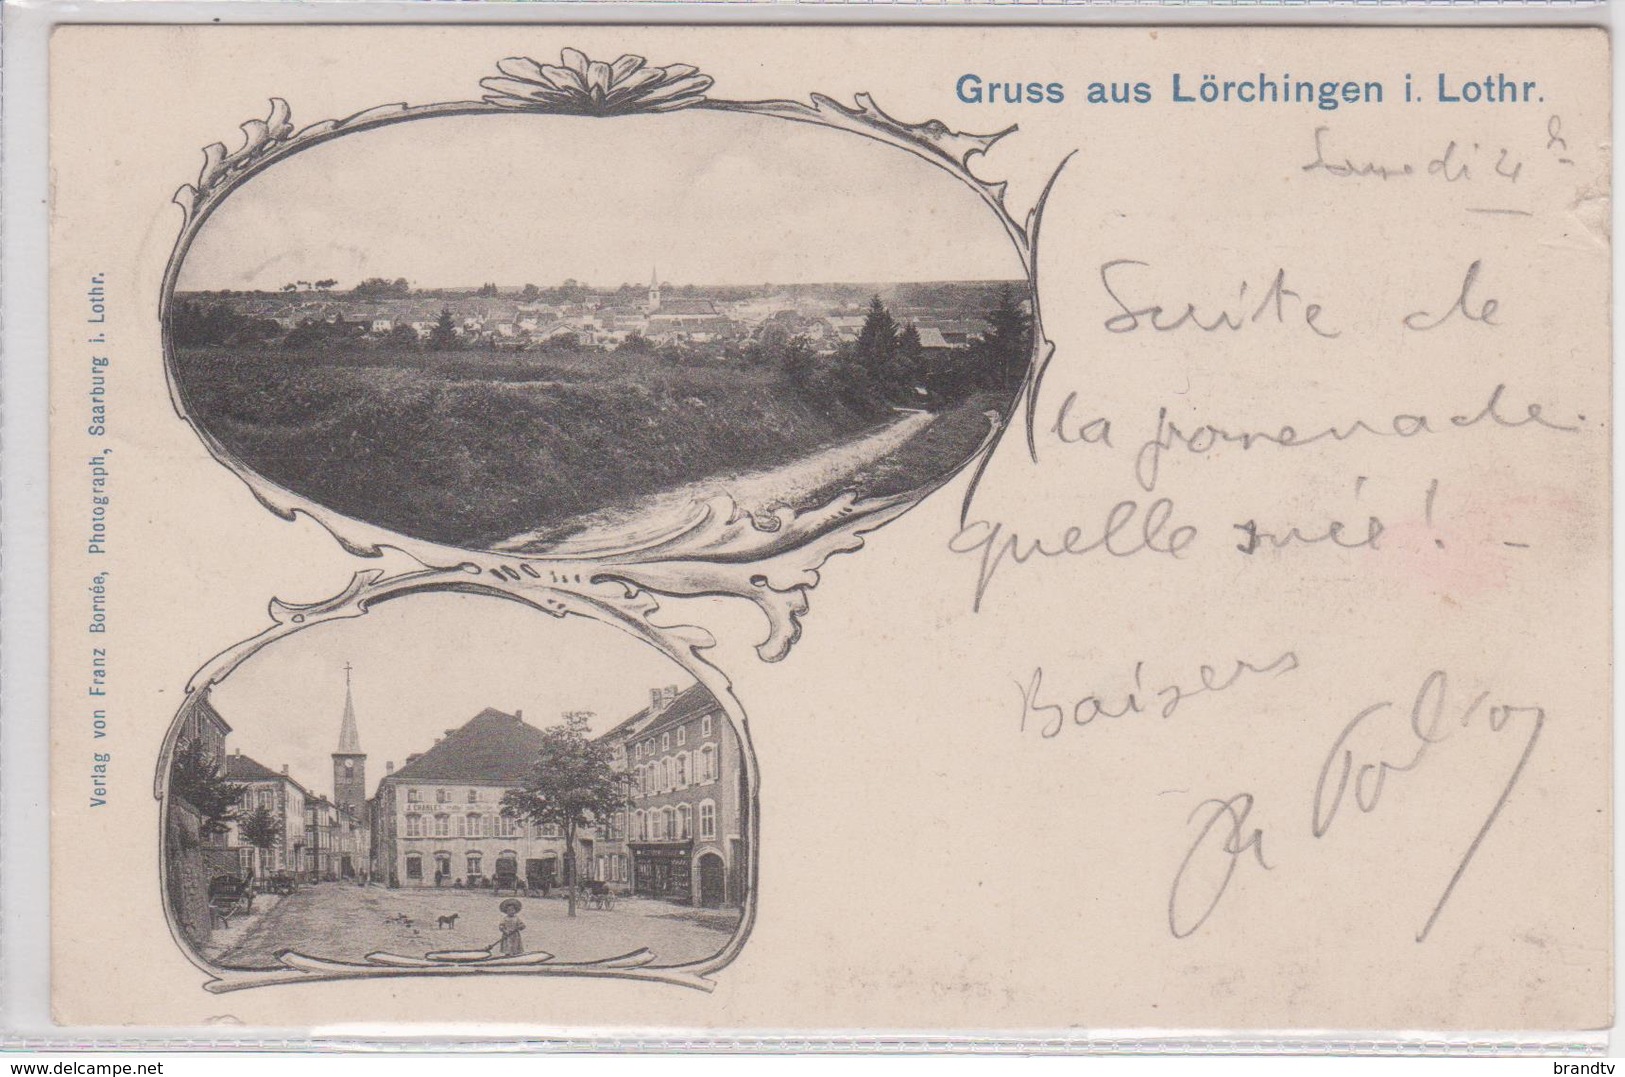 Gruss aus Lörchingen i. Lothr.
Samedi 4 h
Suite de
la promenade.
quelle suée ! -
Baisers
Verlag von Franz Bornée, Photograph, Saarburg i. Lothr.
J. CHARLES
delcampe.net
brandtv